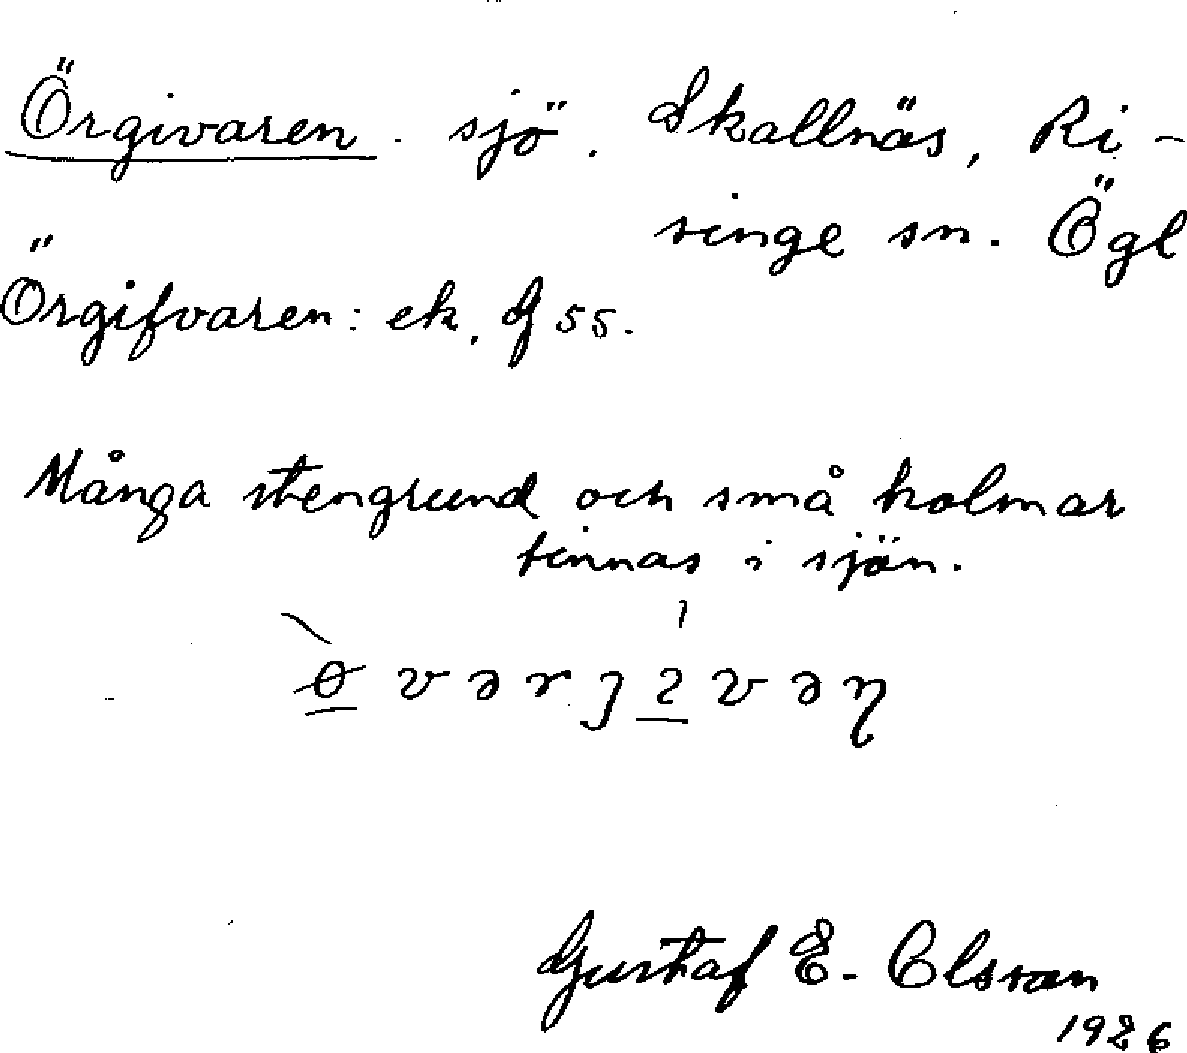 Örgivaren. sjö. Skallnäs, Ri-
singe sn. Ögl
Örgifvaren: ek. G 55.
Många stengrund och små holmar
finnas i sjön.
Gustaf E. Olsson
1926